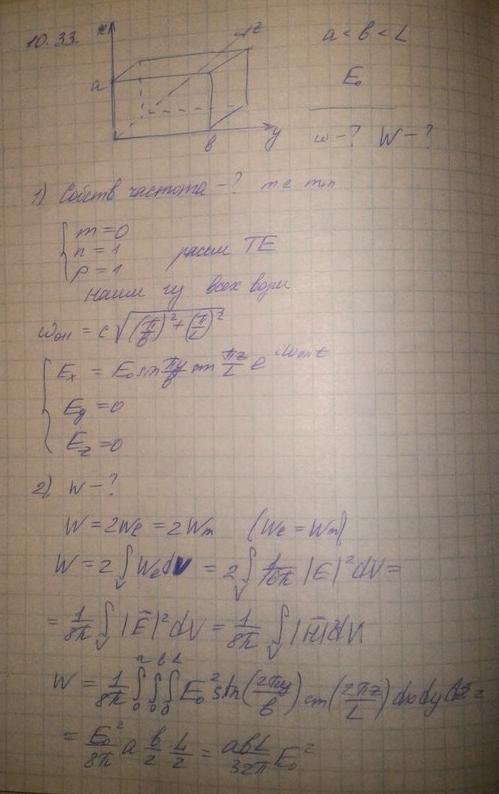 10.33.
x
z
a
b
y
a < b < L
E₀
ω - ? W - ?
1) Собств частота - ? те min
{ m = 0
n = 1
p = 1
рассм TE
найти из всех
ω₀₁₁ = c √((π/b)² + (π/L)²)
{ Eₓ = E₀ sin πy/b sin πz/L e^iω₀₁₁t
E_y = 0
E_z = 0
2) W - ?
W = 2Wₑ = 2Wₘ (Wₑ = Wₘ)
W = 2 ∫_V Wₑ dV = 2 ∫_V 1/16π |E|² dV =
= 1/8π ∫_V |E⃗|² dV = 1/8π ∫_V |H⃗|² dV
W = 1/8π ∫₀^a ∫₀^b ∫₀^L E₀² sin(2πy/b) sin(2πz/L) dx dy dz =
= E₀²/8π a b/2 · L/2 = abL/32π E₀²